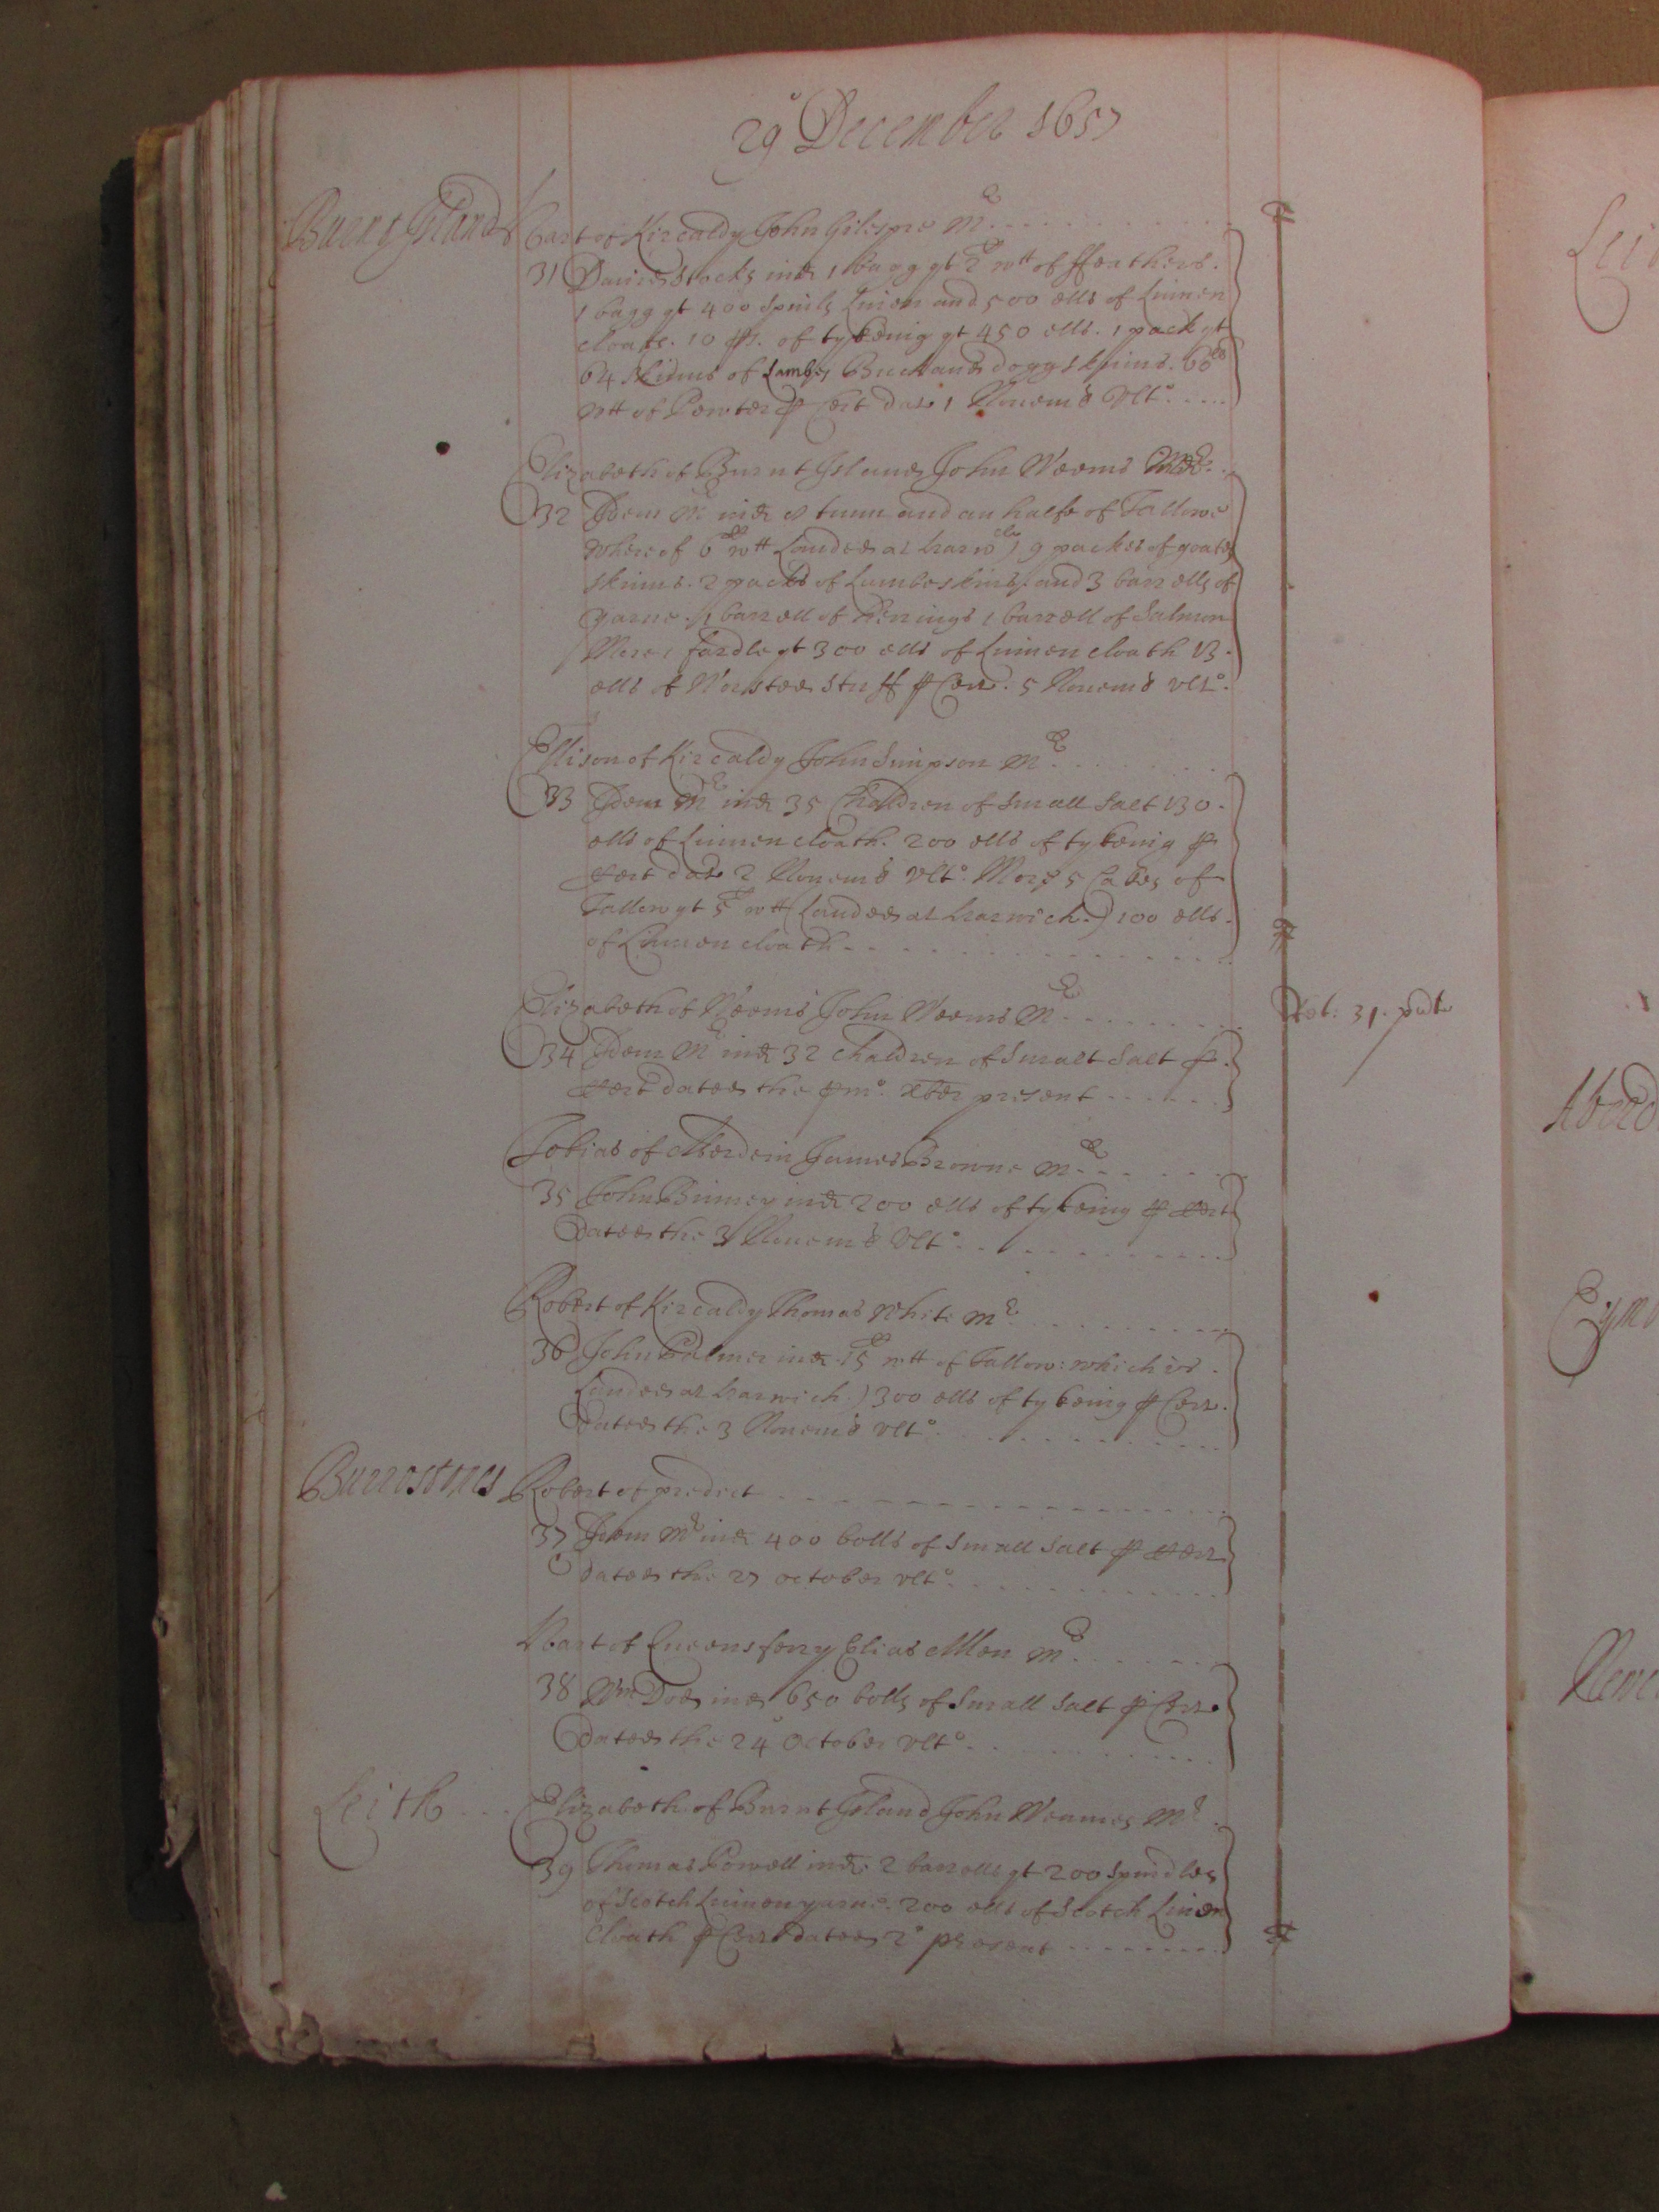 29 December 1657
Burnt Island
Bart of Kircaldy John Gilespie Mr
31 David Stocks inde 1 bagg qt 2 C wtt of ffeathers.
1 bagg qt 400 spinls Linen and 500 ells of Linnen
cloath. 10 ps. of tykeing qt 450 ells. 1 pack qt
64 skinns of Lambs, Buck and dogg skinns. 66 lb
wtt of Pewter p Cert dat 1 Novemb Ult°
Elizabeth of Burnt Island John Weems Mr
32 Idem Mr inde a tunn and an halfe of Tallowe
whereof 6 C wtt Landed at harwch) 9 packes of goate
skinns. 2 packs of Lambeskins. and 3 barrells of
yarne. 1 barrell of Herrings 1 barrell of Salmon
More 1 fardle qt 300 ells of Linnen cloath 13
ells of Worsted Stuff p Cert. 5 Novemb ult°.
Ellison of Kircaldy John Simpson Mr
33 Idem Mr inde 35 Chaldren of Small Salt 130
ells of Linnen cloath. 200 ells of tykeing p
Cert dat 2 Novemb Ult° More 5 Cakes of
Tallow qt 5 C wtt (Landed at harwich.) 100 ells
of Linnen cloath
Elizabeth of Weems John Weems Mr
Tot: 31. pdt
34 Idem Mr inde 32 Chaldren of Small Salt p
Cert dated the pm° Xber present
Tobias of Aberdein James Browne Mr
35 John Binney inde 200 ells of tykeing p Cert
dated the 3 Novemb Ult°
Robert of Kircaldy Thomas White Mr
36 John Palmer inde 15 C wtt of Tallow: which is
Landed at harwich.) 300 ells of tykeing p Cert.
dated the 3 Novemb Ult°
Burrostones
Robert of predict
37 Idem Mr inde 400 bolls of Small Salt p Cert
dated the 27 October ult°
Bart of Queensferry Elias Allen Mr
38 Wm Doe inde 650 bolls of Small Salt p Cert
dated the 24 October Ult°
Leith
Elizabeth of Burnt Island John Weames Mr
39 Thomas Powell inde 2 barrells qt 200 Spindles
of Scotch Linnen yarne. 200 ells of Scotch Linen
Cloath p Cert dated 2° present